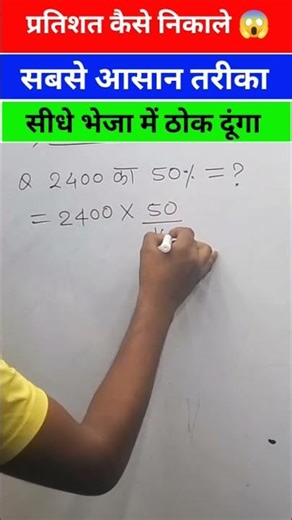 प्रतिशत कैसे निकाले 😱
सबसे आसान तरीका
सीधे भेजा में ठोक दूंगा
Q 2400 का 50% = ?
= 2400 × 50